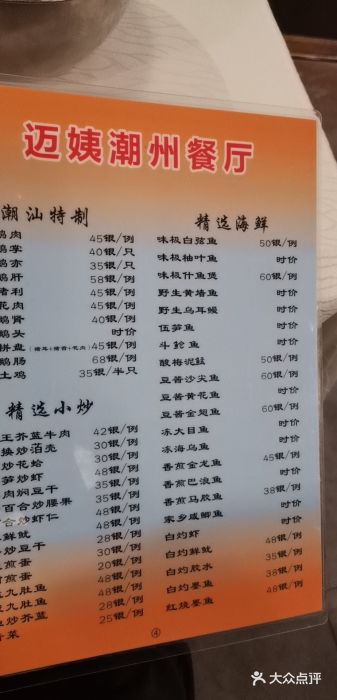 迈姨潮州餐厅
潮汕特制
鹅肉 45银/例
鹅掌 40银/只
鹅亦 35银/只
鹅肝 58银/例
猪利 45银/例
花肉 45银/例
鹅肾 40银/例
鹅头 时价
拼盘(猪耳+猪舌+花肉) 45银/例
鹅肠 68银/例
土鸡 35银/半只
精选小炒
王芥蓝牛肉 42银/例
换炒泊壳 30银/例
炒花蛤 30银/例
笋炒虾 48银/例
肉焖豆干 35银/例
百合炒腰果 35银/例
合炒虾仁 48银/例
鲜鱿 28银/例
炒豆干 30银/例
煎蛋 20银/例
煎蛋 48银/例
九肚鱼 48银/例
九肚鱼 28银/例
炒芥蓝 25银/例
菜
精选海鲜
味极白弦鱼 50银/例
味极柚叶鱼 时价
味极什鱼煲 60银/例
野生黄墙鱼 时价
野生乌耳鳗 时价
伍笋鱼 时价
斗鲳鱼 时价
酸梅泥鯭 50银/例
豆酱沙尖鱼 60银/例
豆酱黄花鱼 时价
豆酱金翅鱼 60银/例
冻大目鱼 时价
冻海乌鱼 时价
香煎金龙鱼 45银/
香煎巴浪鱼 时价
香煎马胶鱼 38银/
家乡咸鲫鱼 时价
白灼虾 48银/
白灼鲜鱿 35银/
白灼胶水 38银/
白灼墨鱼 48银/
红烧墨鱼 48银/
④
大众点评